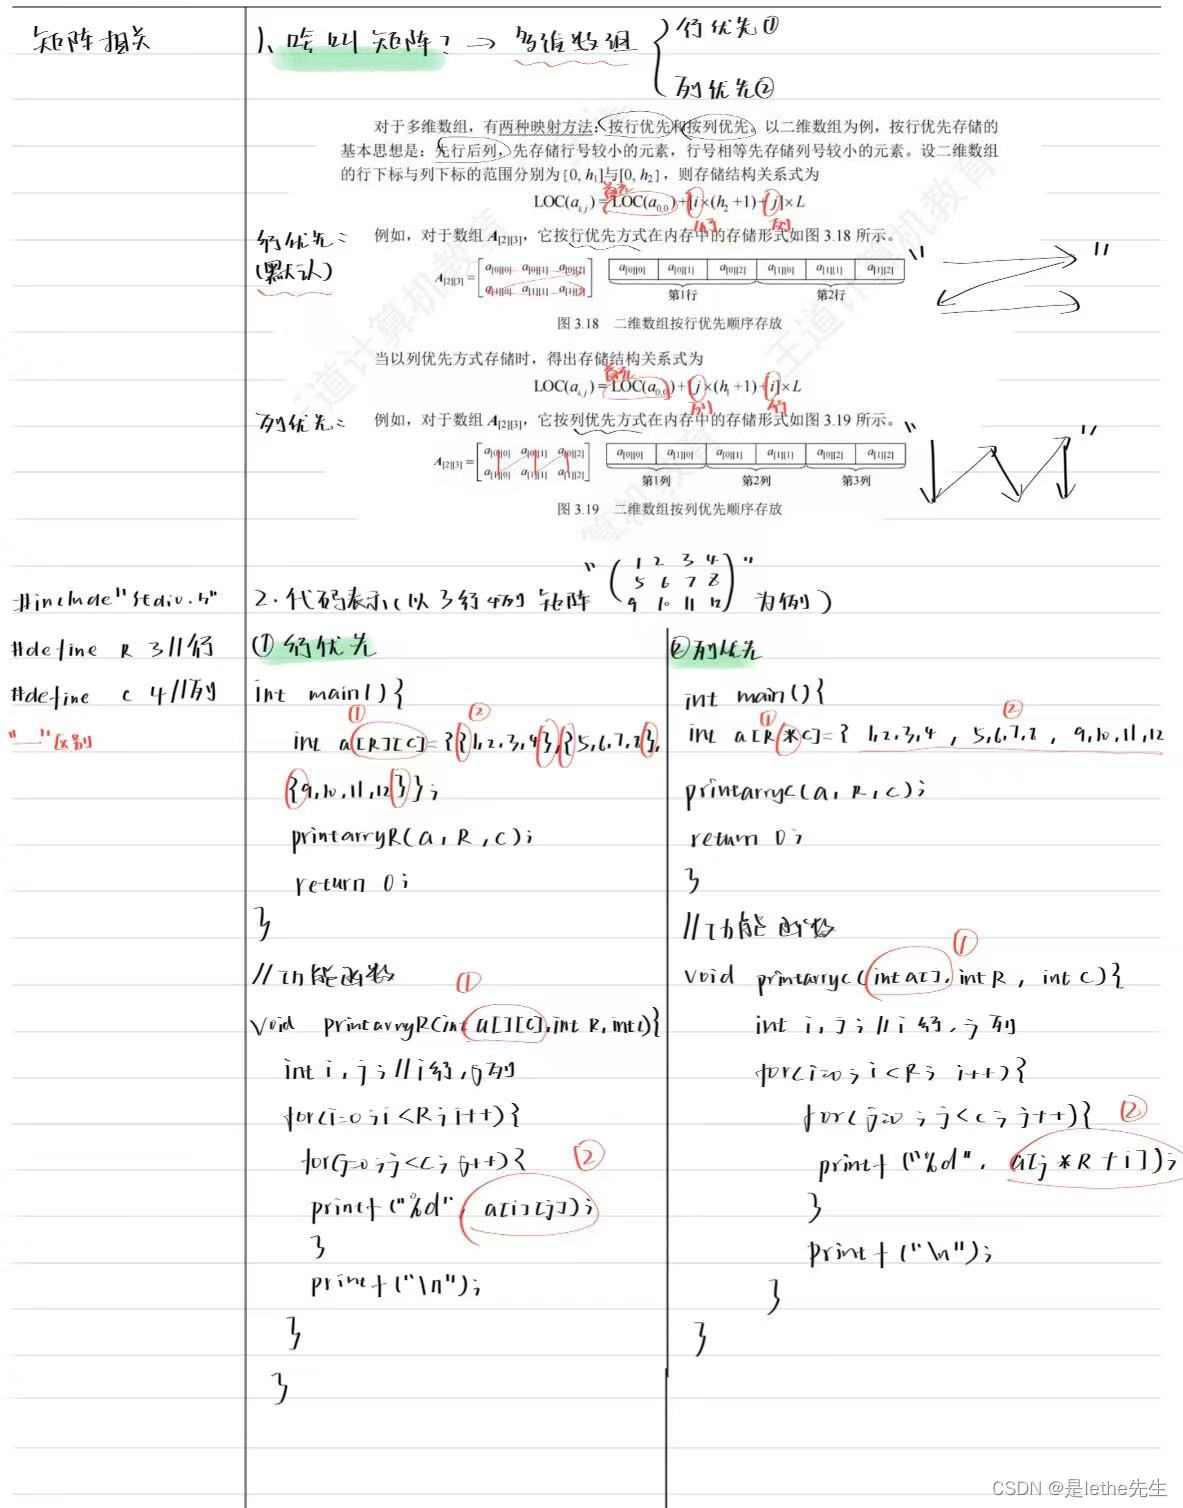 矩阵相关
1、啥叫矩阵? → 多维数组 { 行优先①
列优先②
对于多维数组，有两种映射方法：按行优先和按列优先。以二维数组为例，按行优先存储的
基本思想是：先行后列，先存储行号较小的元素，行号相等先存储列号较小的元素。设二维数组
的行下标与列下标的范围分别为[0, h₁]与[0, h₂]，则存储结构关系式为
首元
LOC(aᵢ,ⱼ) = LOC(a₀,₀) + [i×(h₂+1)+j]×L
行 列
行优先：
(默认)
例如，对于数组 A[2][3]，它按行优先方式在内存中的存储形式如图 3.18 所示。
A[2][3] = [ a[0][0] a[0][1] a[0][2]
a[1][0] a[1][1] a[1][2] ]
a[0][0] a[0][1] a[0][2] a[1][0] a[1][1] a[1][2]
第1行 第2行
图 3.18 二维数组按行优先顺序存放
当以列优先方式存储时，得出存储结构关系式为
首元
LOC(aᵢ,ⱼ) = LOC(a₀,₀) + [j×(h₁+1)+i]×L
列 行
列优先：
例如，对于数组 A[2][3]，它按列优先方式在内存中的存储形式如图 3.19 所示。
A[2][3] = [ a[0][0] a[0][1] a[0][2]
a[1][0] a[1][1] a[1][2] ]
a[0][0] a[1][0] a[0][1] a[1][1] a[0][2] a[1][2]
第1列 第2列 第3列
图 3.19 二维数组按列优先顺序存放
王道计算机教育
#include "stdio.h"
#define R 3 //行
#define C 4 //列
"—" 区别
2. 代码表示(以3行4列矩阵 " ( 1 2 3 4
5 6 7 8
9 10 11 12 ) " 为例)
① 行优先
int main(){
① ②
int a[R][C]={{1,2,3,4},{5,6,7,8},
{9,10,11,12}};
printarryR(a,R,C);
return 0;
}
//功能函数
①
void printarryR(int a[][C],int R,int C){
int i,j; //i行,j列
for(i=0;i<R;i++){
for(j=0;j<C;j++){ ②
printf("%d", a[i][j]);
}
printf("\n");
}
}
② 列优先
int main(){
① ②
int a[R*C]={ 1,2,3,4 , 5,6,7,8 , 9,10,11,12
printarryC(a,R,C);
return 0;
}
//功能函数
①
void printarryC(int a[],int R, int C){
int i,j; //i行,j列
for(i=0;i<R; i++){
for(j=0;j<C;j++){ ②
printf("%d", a[j*R+i]);
}
printf("\n");
}
}
CSDN @是lethe先生